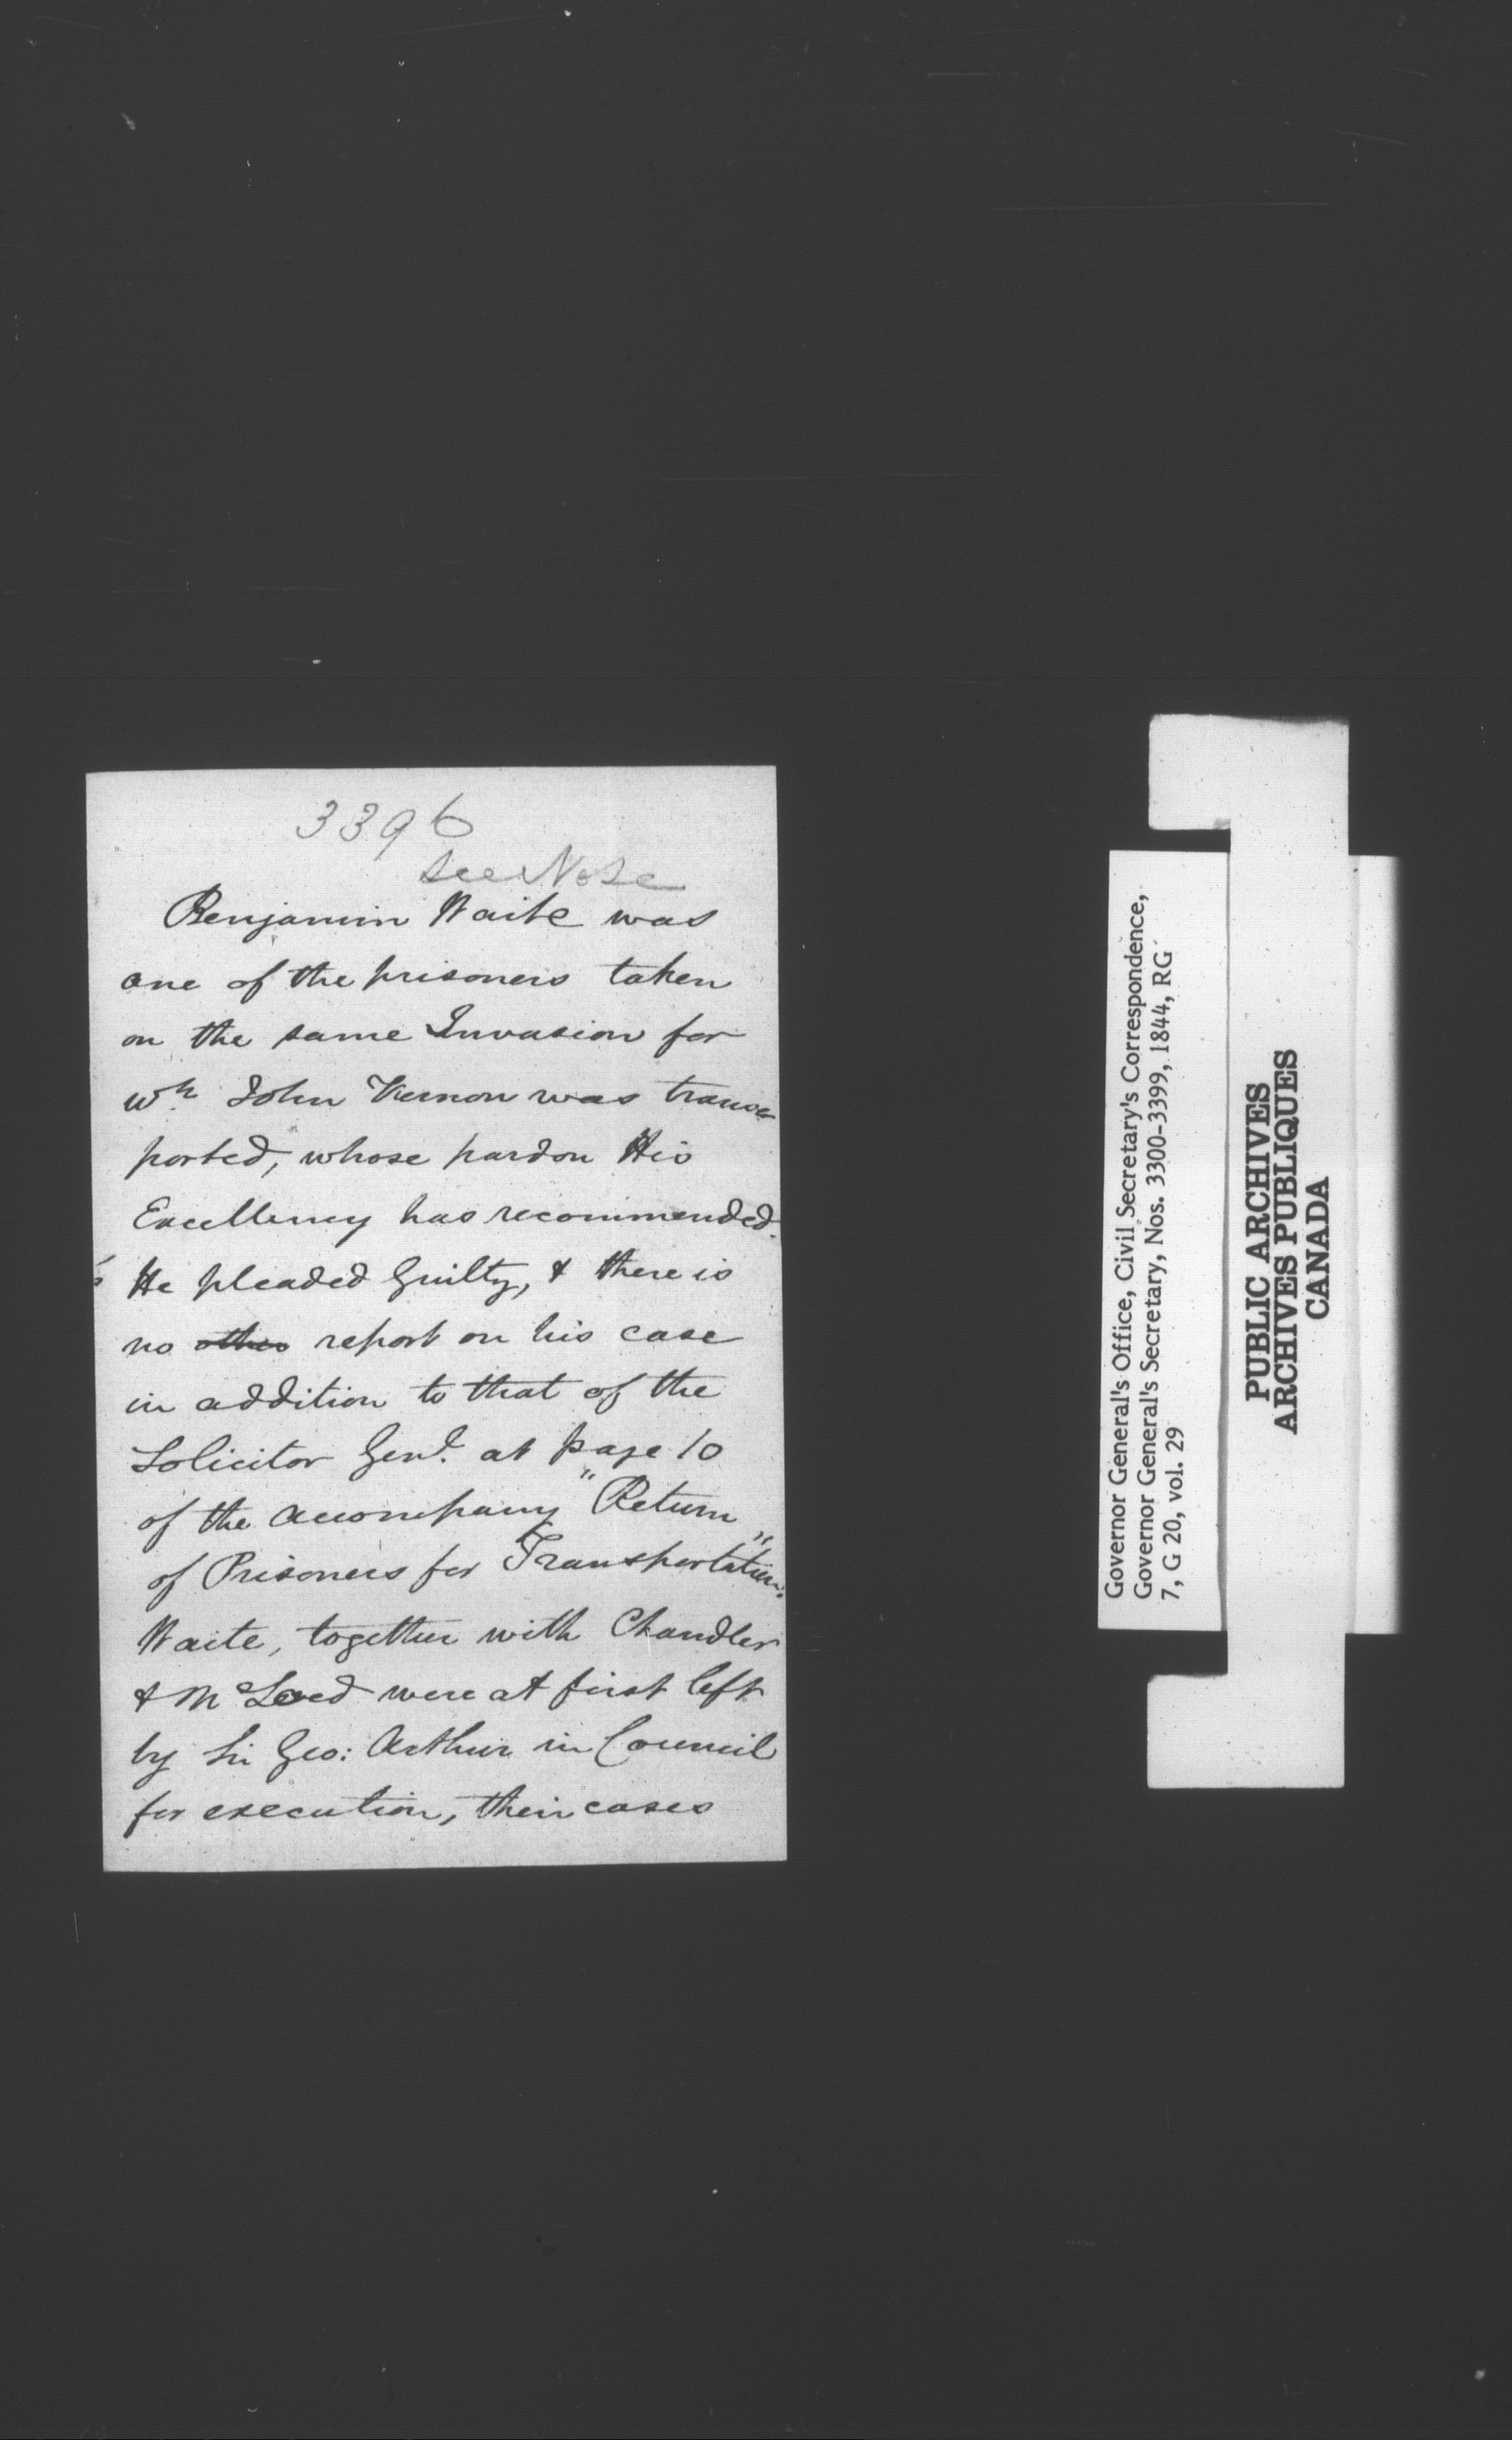 3396
See Note
Benjamin Waite was
one of the prisoners taken
on the same Invasion for
wh John Vernon was trans-
ported, whose pardon His
Excellency has recommended.
He pleaded Guilty, & there is
no other report on his case
in addition to that of the
Solicitor Genl. at page 10
of the accompany "Return
of Prisoners for Transportation."
Waite, together with Chandler
& McLeod were at first left
by Sir Geo: Arthur in Council
for execution, their cases
Governor General's Office, Civil Secretary's Correspondence,
Governor General's Secretary, Nos. 3300-3399, 1844, RG
7, G 20, vol. 29
PUBLIC ARCHIVES
ARCHIVES PUBLIQUES
CANADA